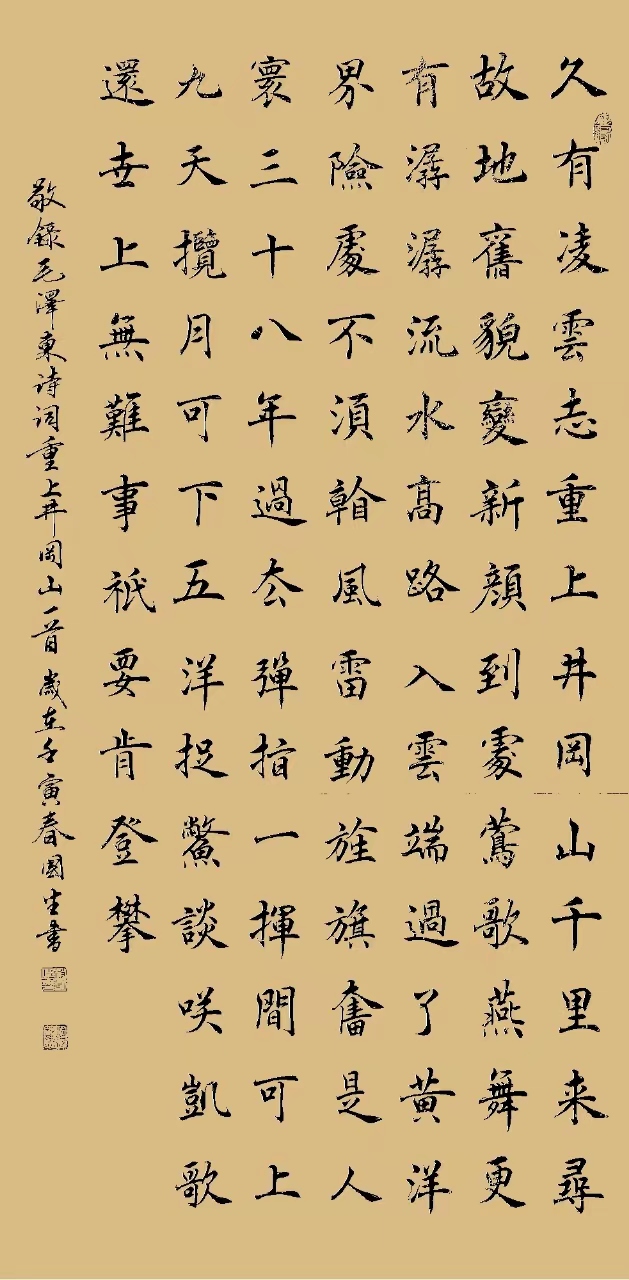 久有凌雲志重上井岡山千里来尋
故地舊貌變新顔到處鶯歌燕舞更
有潺潺流水髙路入雲端過了黄洋
界險處不湏看風雷動旌旗奮是人
寰三十八年過厺彈指一揮間可上
九天攬月可下五洋捉鱉談咲凱歌
還世上無難事祇要肯登攀
敬錄毛澤東诗词重上井岡山一首 歲在壬寅春國生書